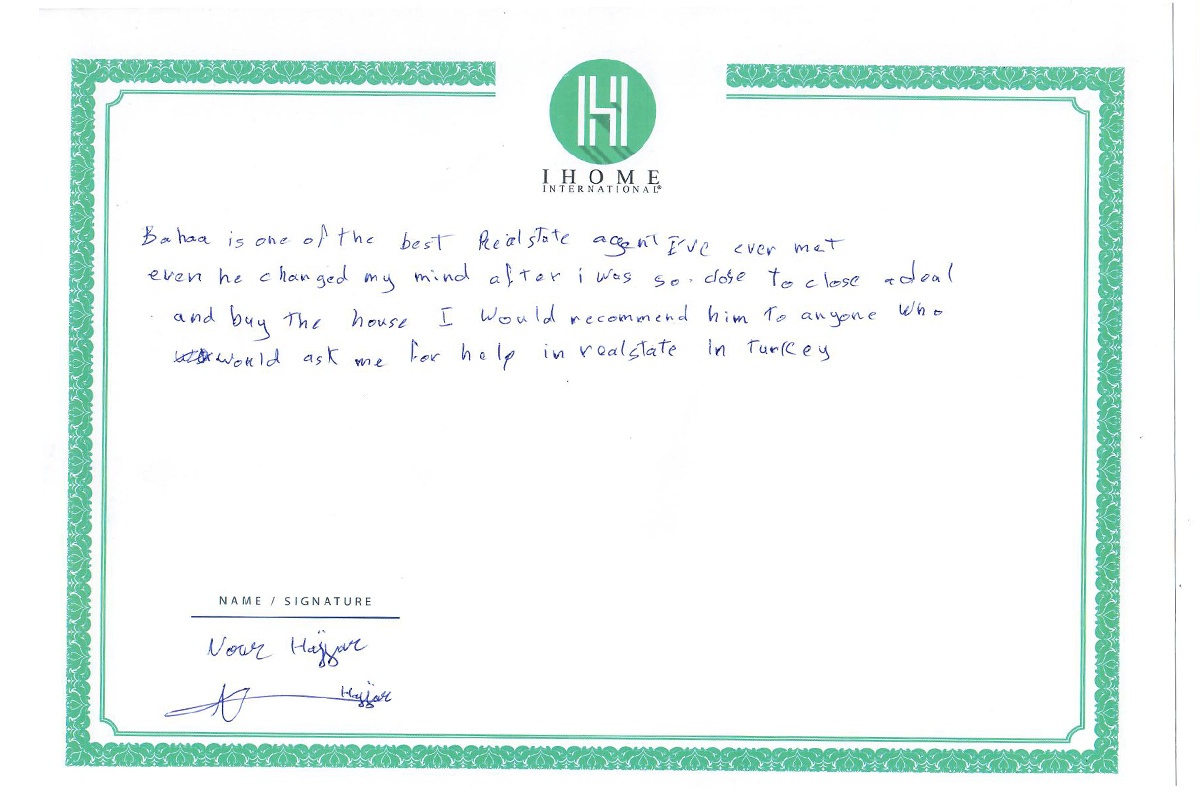 IHOME
INTERNATIONAL®
Bahaa is one of the best Realstate agent I've ever met
even he changed my mind after i was so close to close a deal
and buy the house I would recommend him to anyone who
would ask me for help in realstate In Turkey
NAME / SIGNATURE
Nour Hajjar
Hajjar